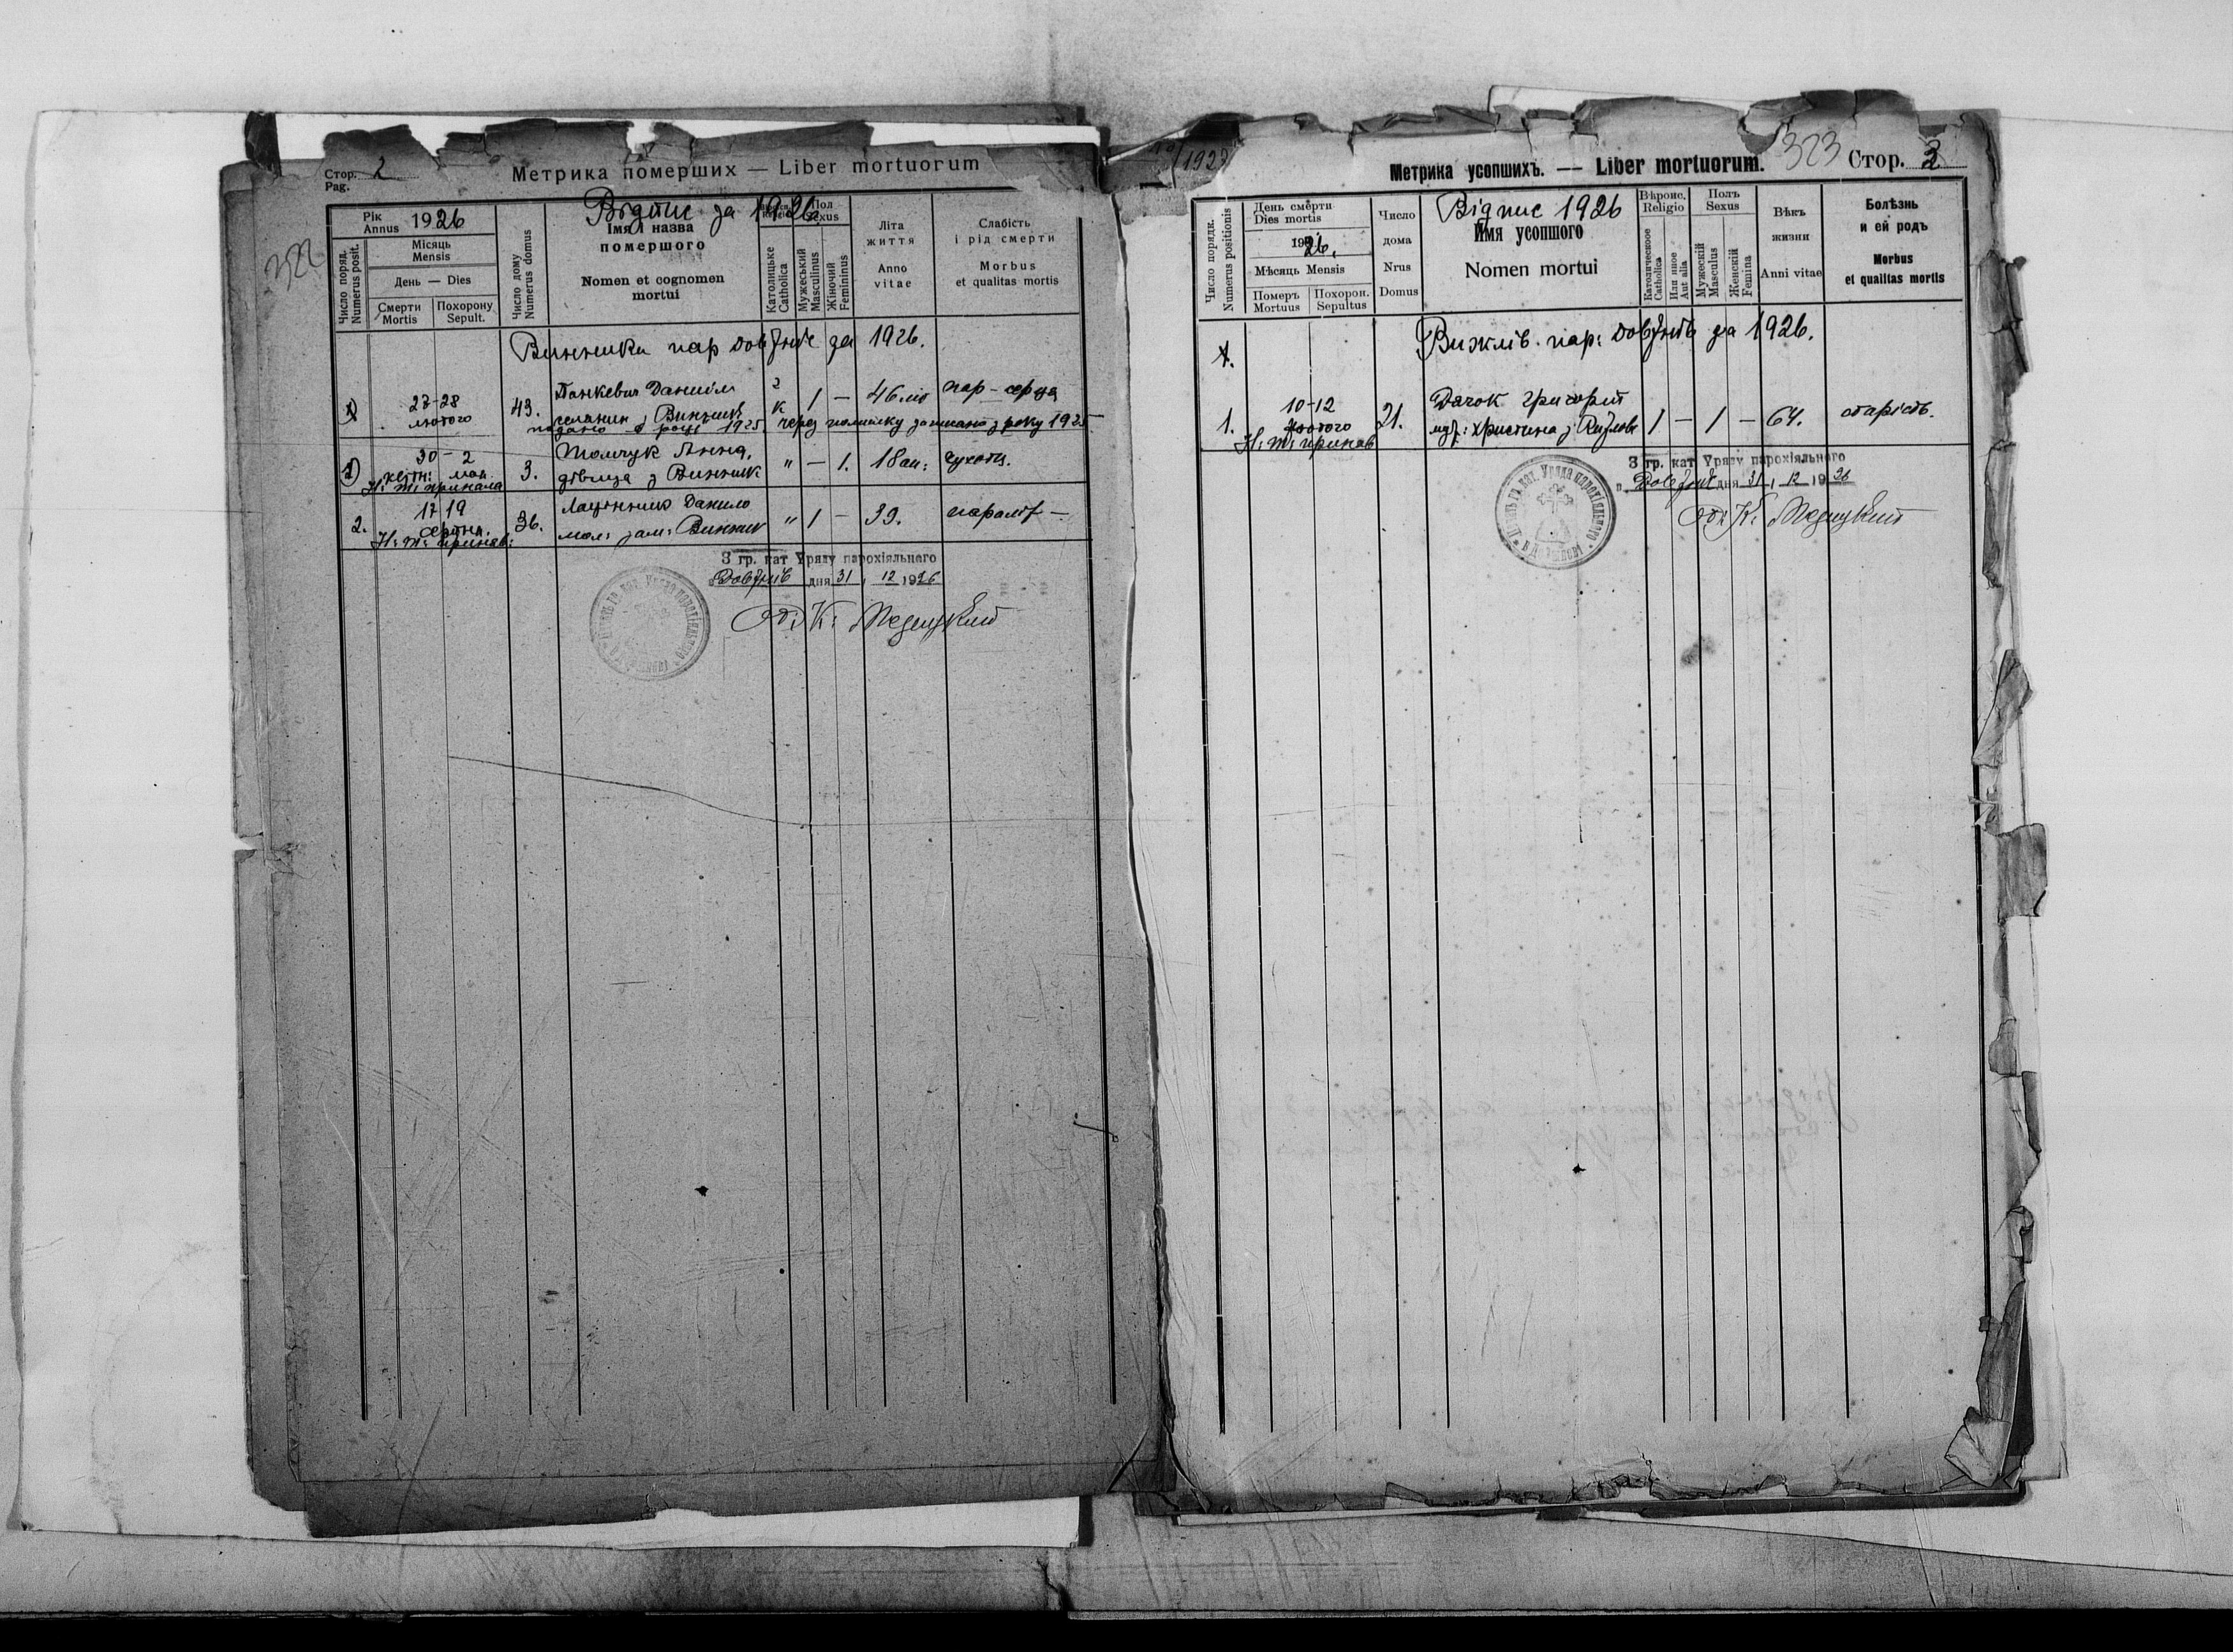 Стор. 2
Pag.
Метрика померших — Liber mortuorum
322
Відпис за 1926.
Рік
Annus 1926
Число поряд.
Numerus posit.
Місяць
Mensis
День — Dies
Смерти
Mortis
Похорону
Sepult.
Число дому
Numerus domus
Імя і назва
помершого
Nomen et cognomen
mortui
Католицьке
Catholica
Пол
Sexus
Мужеський
Masculinus
Жіночий
Femininus
Літа
життя
Anno
vitae
Слабість
і рід смерти
Morbus
et qualitas mortis
Винники пар Добзнів за 1926.
27-28
лютого
43.
Панкевич Даниїл
селянин з Винник
г
к
1 —
46 літ
пар — серця
подано в році 1925. через помилку записано з року 1925
1)
30 — 2
квітн: мая
Н: т: приняла
3.
Томчук Анна,
дівиця з Винник
" — 1.
18 літ:
сухоти.
2.
17 19
серпня.
Н: т: приняв:
36.
Данило
мол: зам: Винник
" 1 —
39.
параліж —
З гр. кат Уряду парохіяльного
в Добзнів дня 31, 12 1926
о. К: Медицкий
1927
Метрика усопшихъ. — Liber mortuorum.
323
Стор. 3
Число порядк.
Numerus positionis
День смерти
Dies mortis
1926.
Мѣсяць Mensis
Померъ
Mortuus
Похорон.
Sepultus
Число
дома
Nrus
Domus
Відпис 1926
Имя усопшого
Nomen mortui
Вѣроис.
Religio
Католическое
Catholica
Или иное
Aut alia
Полъ
Sexus
Мужескій
Masculus
Женскій
Femina
Вѣкъ
жизни
Anni vitae
Болѣзнь
и ей родъ
Morbus
et qualitas mortis
Вижлів. пар: Добзнів за 1926.
1.
10-12
лютого
Н: т: приняв
21.
Дачок Григорий
муж: Христина з
1 — 1 —
64.
старість.
З гр. кат Уряду парохіяльного
в Добзнів дня 31, 12 1926
о. К: Медицкий